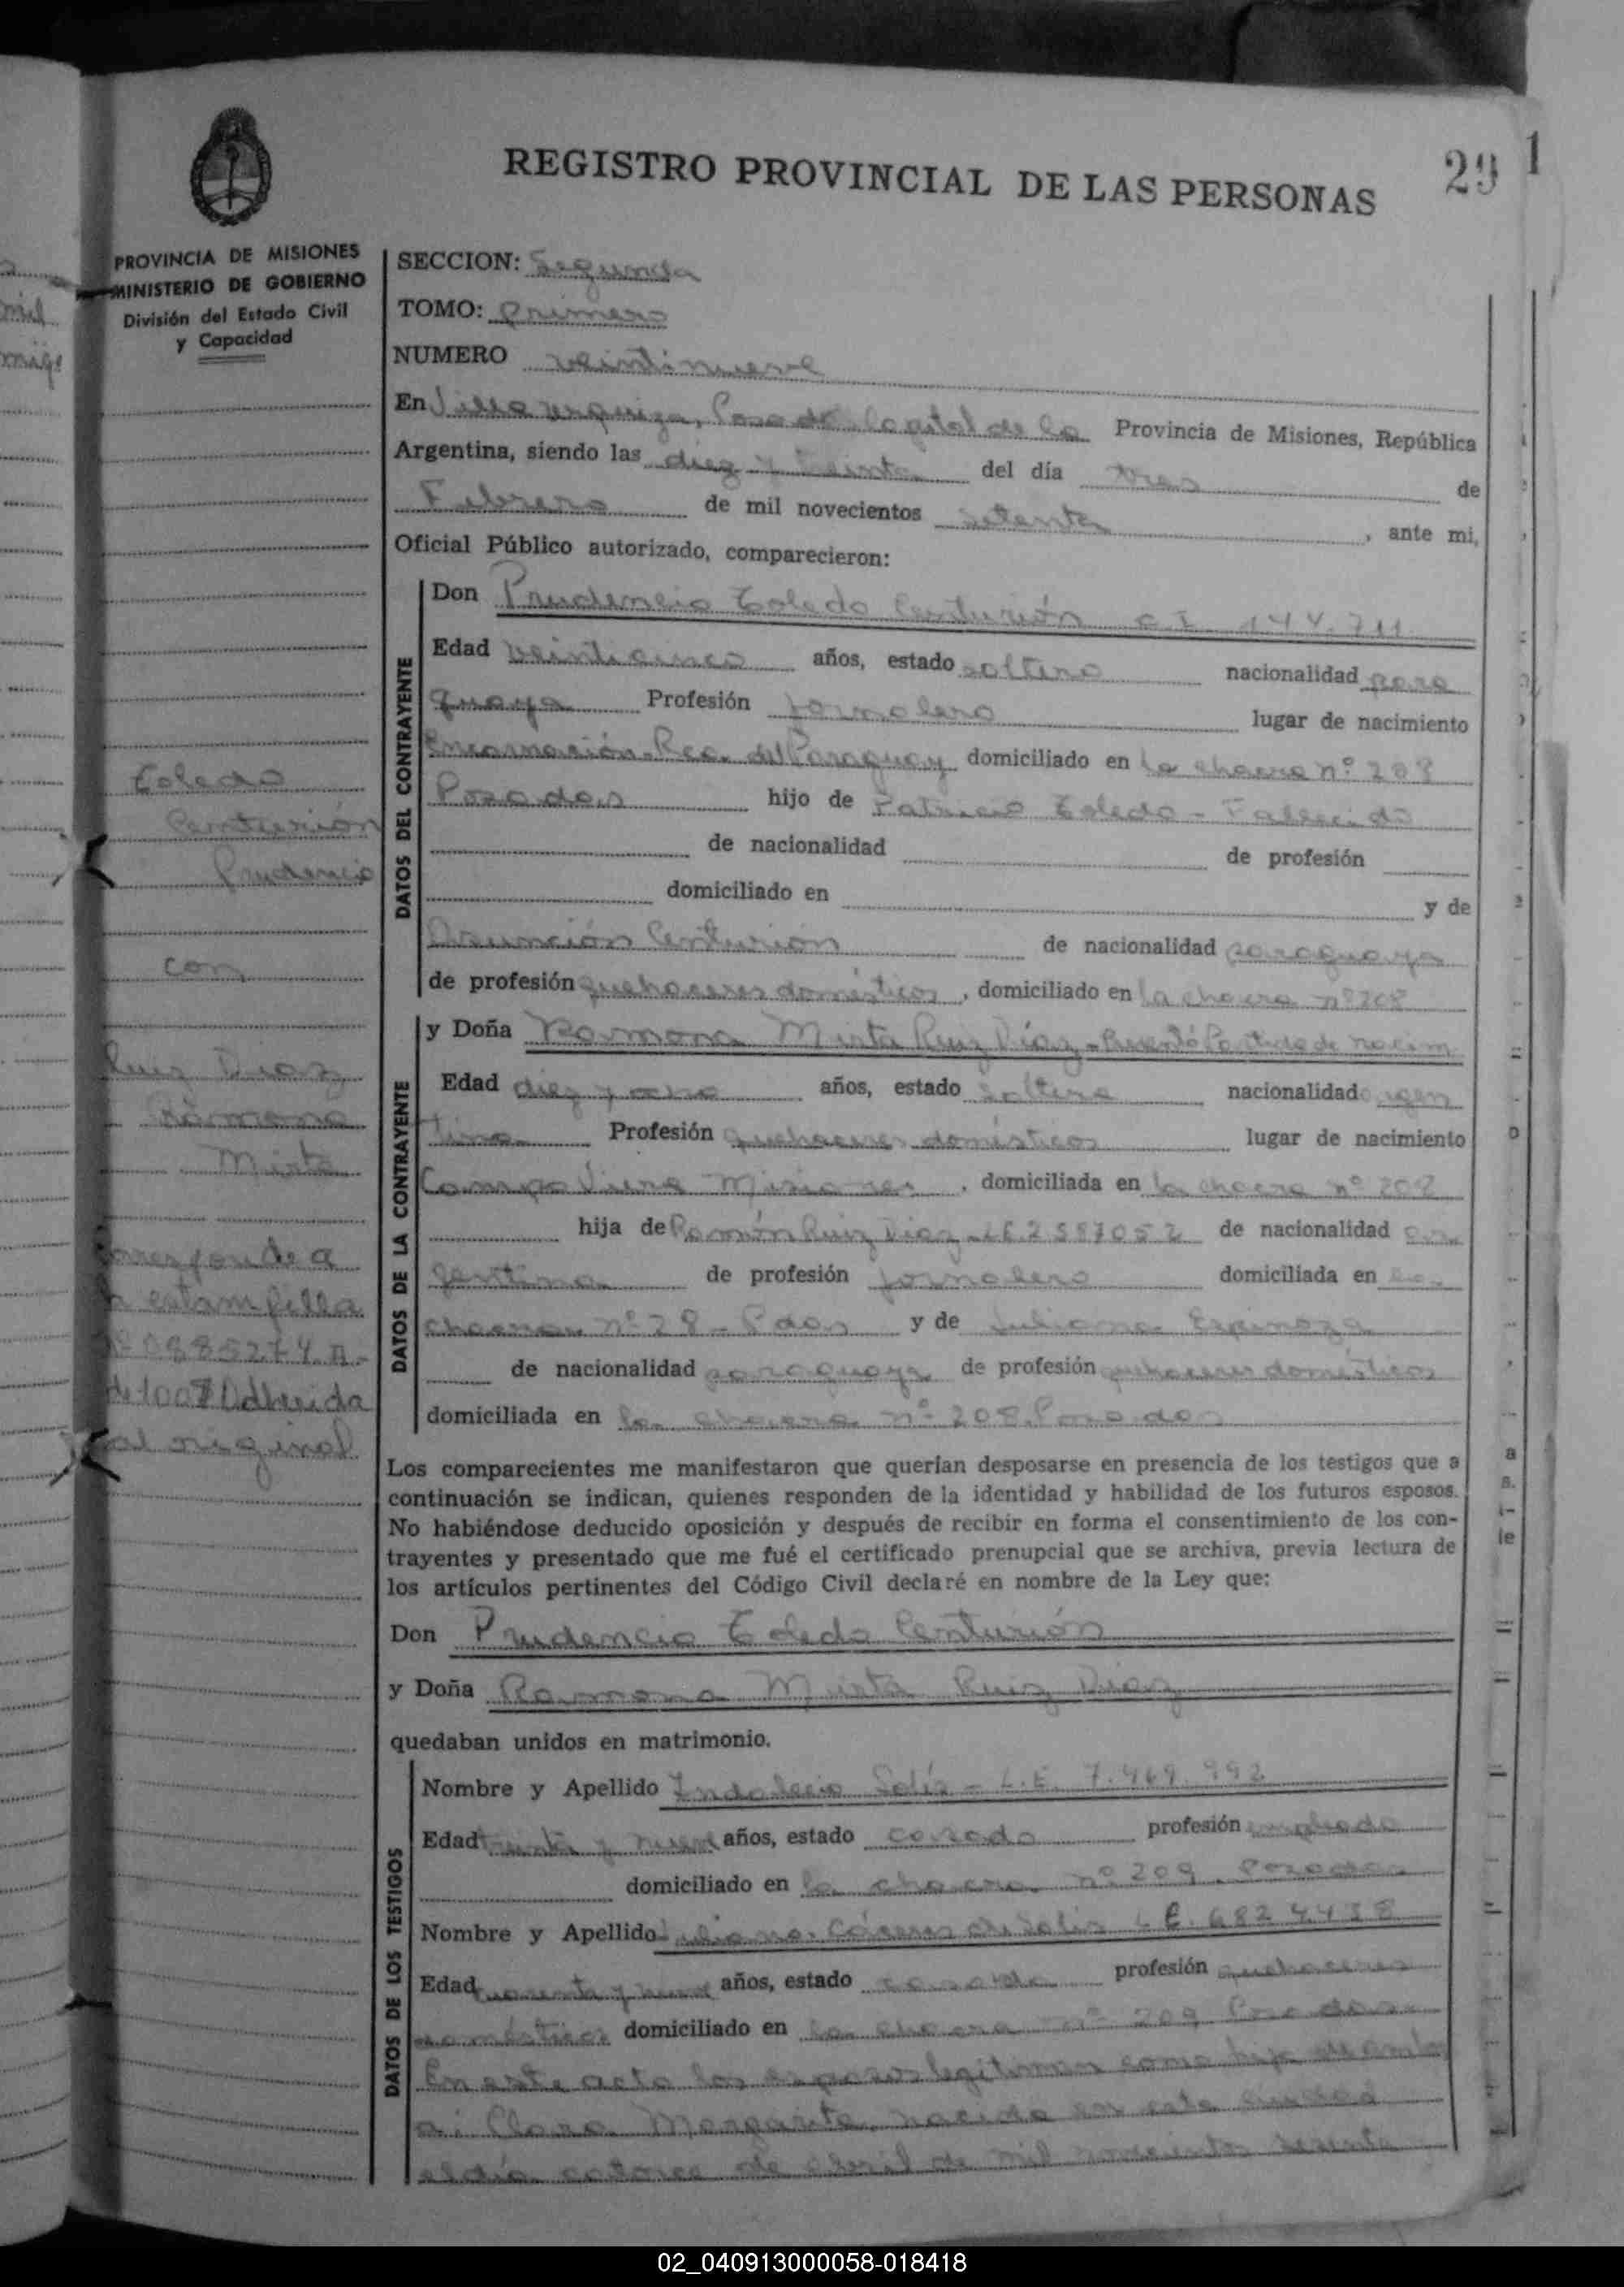 REGISTRO PROVINCIAL DE LAS PERSONAS
29
1
PROVINCIA DE MISIONES
MINISTERIO DE GOBIERNO
División del Estado Civil
y Capacidad
SECCION: Segunda
TOMO: Primero
NUMERO veintinueve
En Villa Urquiza, Posadas Capital de la Provincia de Misiones, República
Argentina, siendo las diez y treinta del día tres de
Febrero de mil novecientos setenta, ante mi,
Oficial Público autorizado, comparecieron:
DATOS DEL CONTRAYENTE
Don Prudencio Toledo Centurión C.I. 144.711
Edad veinticinco años, estado soltero nacionalidad para
guaya Profesión Jornalero lugar de nacimiento
Encarnación-Rca. del Paraguay domiciliado en la chacra nº 208
Posadas hijo de Patricio Toledo - Fallecido
de nacionalidad de profesión
domiciliado en y de
Asunción Centurión de nacionalidad paraguaya
de profesión quehaceres domésticos, domiciliado en la chacra nº 208
Toledo
Centurión
Prudencio
con
Ruiz Diaz
Ramona
Mirta
corresponde a
la estampilla
Nº 0885274 A-
de 100$ Adherida
al original
DATOS DE LA CONTRAYENTE
y Doña Ramona Mirta Ruiz Díaz - Presentó Partida de nacim
Edad diez y ocho años, estado soltera nacionalidad argen
tina Profesión quehaceres domésticos lugar de nacimiento
Campo Viera Misiones, domiciliada en la chacra nº 208
hija de Ramón Ruiz Diaz - L.E. 2587052 de nacionalidad ar
gentina de profesión Jornalero domiciliada en la
chacra nº 28 - Pdas y de Juliana Espinoza
de nacionalidad paraguaya de profesión quehaceres domésticos
domiciliada en la chacra nº 208 Posadas
Los comparecientes me manifestaron que querían desposarse en presencia de los testigos que a
continuación se indican, quienes responden de la identidad y habilidad de los futuros esposos.
No habiéndose deducido oposición y después de recibir en forma el consentimiento de los con-
trayentes y presentado que me fué el certificado prenupcial que se archiva, previa lectura de
los artículos pertinentes del Código Civil declaré en nombre de la Ley que:
Don Prudencio Toledo Centurión
y Doña Ramona Mirta Ruiz Diaz
quedaban unidos en matrimonio.
DATOS DE LOS TESTIGOS
Nombre y Apellido Indalecio Solís - L.E. 7.469.992
Edad treinta y nueve años, estado casado profesión empleado
domiciliado en la chacra nº 209 Posadas
Nombre y Apellido Juliana Cáceres de Solís L.E. 6824438
Edad cuarenta y nueve años, estado casada profesión quehaceres
domésticos domiciliado en la chacra nº 209 Posadas
En este acto los esposos legitiman como hija de ambos
a: Clara Margarita, nacida en esta ciudad
el día catorce de abril de mil novecientos sesenta
02_040913000058-018418